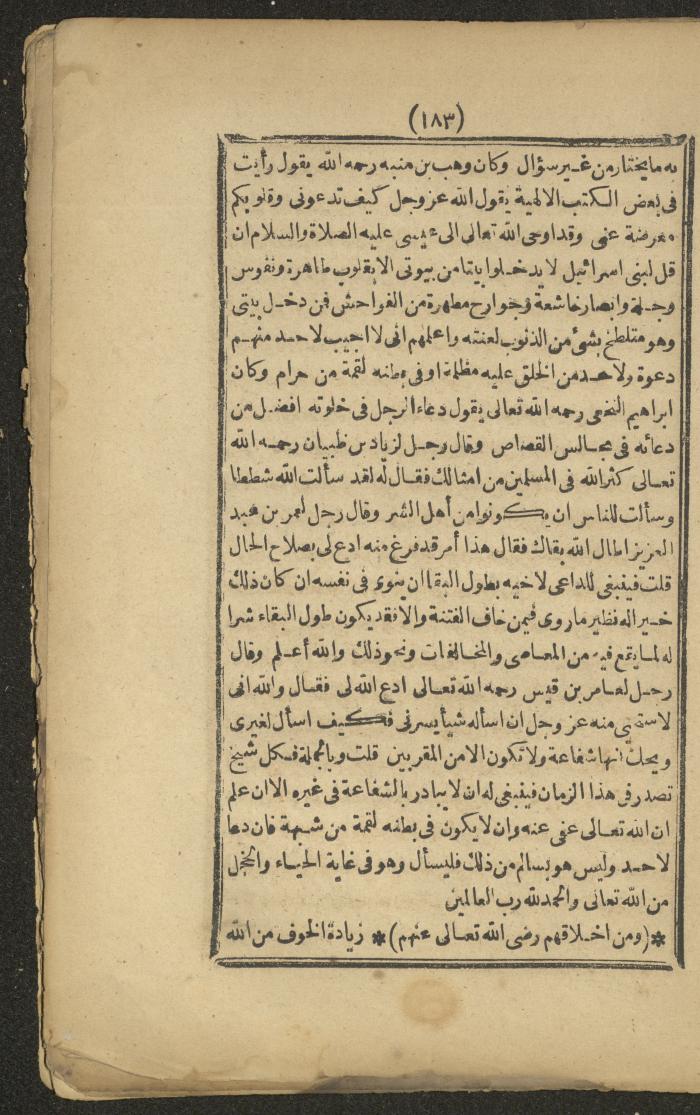 (١٨٣)
به ما يختار من غير سؤال وكان وهب بن منبه رحمه الله يقول رأيت
فى بعض الكتب الالهية يقول الله عز وجل كيف تدعونى وقلوبكم
معرضة عنى وقد اوحى الله تعالى الى عيسى عليه الصلاة والسلام ان
قل لبنى اسرائيل لا يدخلوا بيتا من بيوتى الا بقلوب طاهرة ونفوس
وجلة وابصار خاشعة وجوارح مطهرة من الفواحش فمن دخل بيتى
وهو متلطخ بشئ من الذنوب لعنته واعلمهم انى لا اجيب لاحد منهم
دعوة ولاحد من الخلق عليه مظلمة او فى بطنه لقمة من حرام وكان
ابراهيم النخعى رحمه الله تعالى يقول دعاء الرجل فى خلوته افضل من
دعائه فى مجالس القصاص وقال رجل لزياد بن ظبيان رحمه الله
تعالى كثر الله فى المسلمين من امثالك فقال له لقد سألت الله شططا
وسألت للناس ان يكونوا من أهل الشر وقال رجل لعمر بن عبد
العزيز اطال الله بقاك فقال هذا أمر قد فرغ منه ادع لى بصلاح الحال
قلت فينبغى للداعى لاخيه بطول البقا ان ينوى فى نفسه ان كان ذلك
خيرا له نظير ما روى فيمن خاف الفتنة والا فقد يكون طول البقاء شرا
له لما يقع فيه من المعاصى والمخالفات ونحو ذلك والله أعلم وقال
رجل لعامر بن قيس رحمه الله تعالى ادع الله لى فقال والله انى
لاستحيى منه عز وجل ان اسأله شيأ يسرنى فكيف اسأل لغيرى
ويحك انها شفاعة ولا تكون الا من المقربين قلت وبالجملة فكل شيخ
تصدر فى هذا الزمان فينبغى له ان لا يبادر بالشفاعة فى غيره الا ان علم
ان الله تعالى عفى عنه وان لا يكون فى بطنه لقمة من شبهة فان دعا
لاحد وليس هو بسالم من ذلك فليسأل وهو فى غاية الحياء والخجل
من الله تعالى والحمد لله رب العالمين
* (ومن اخلاقهم رضى الله تعالى عنهم) * زيادة الخوف من الله